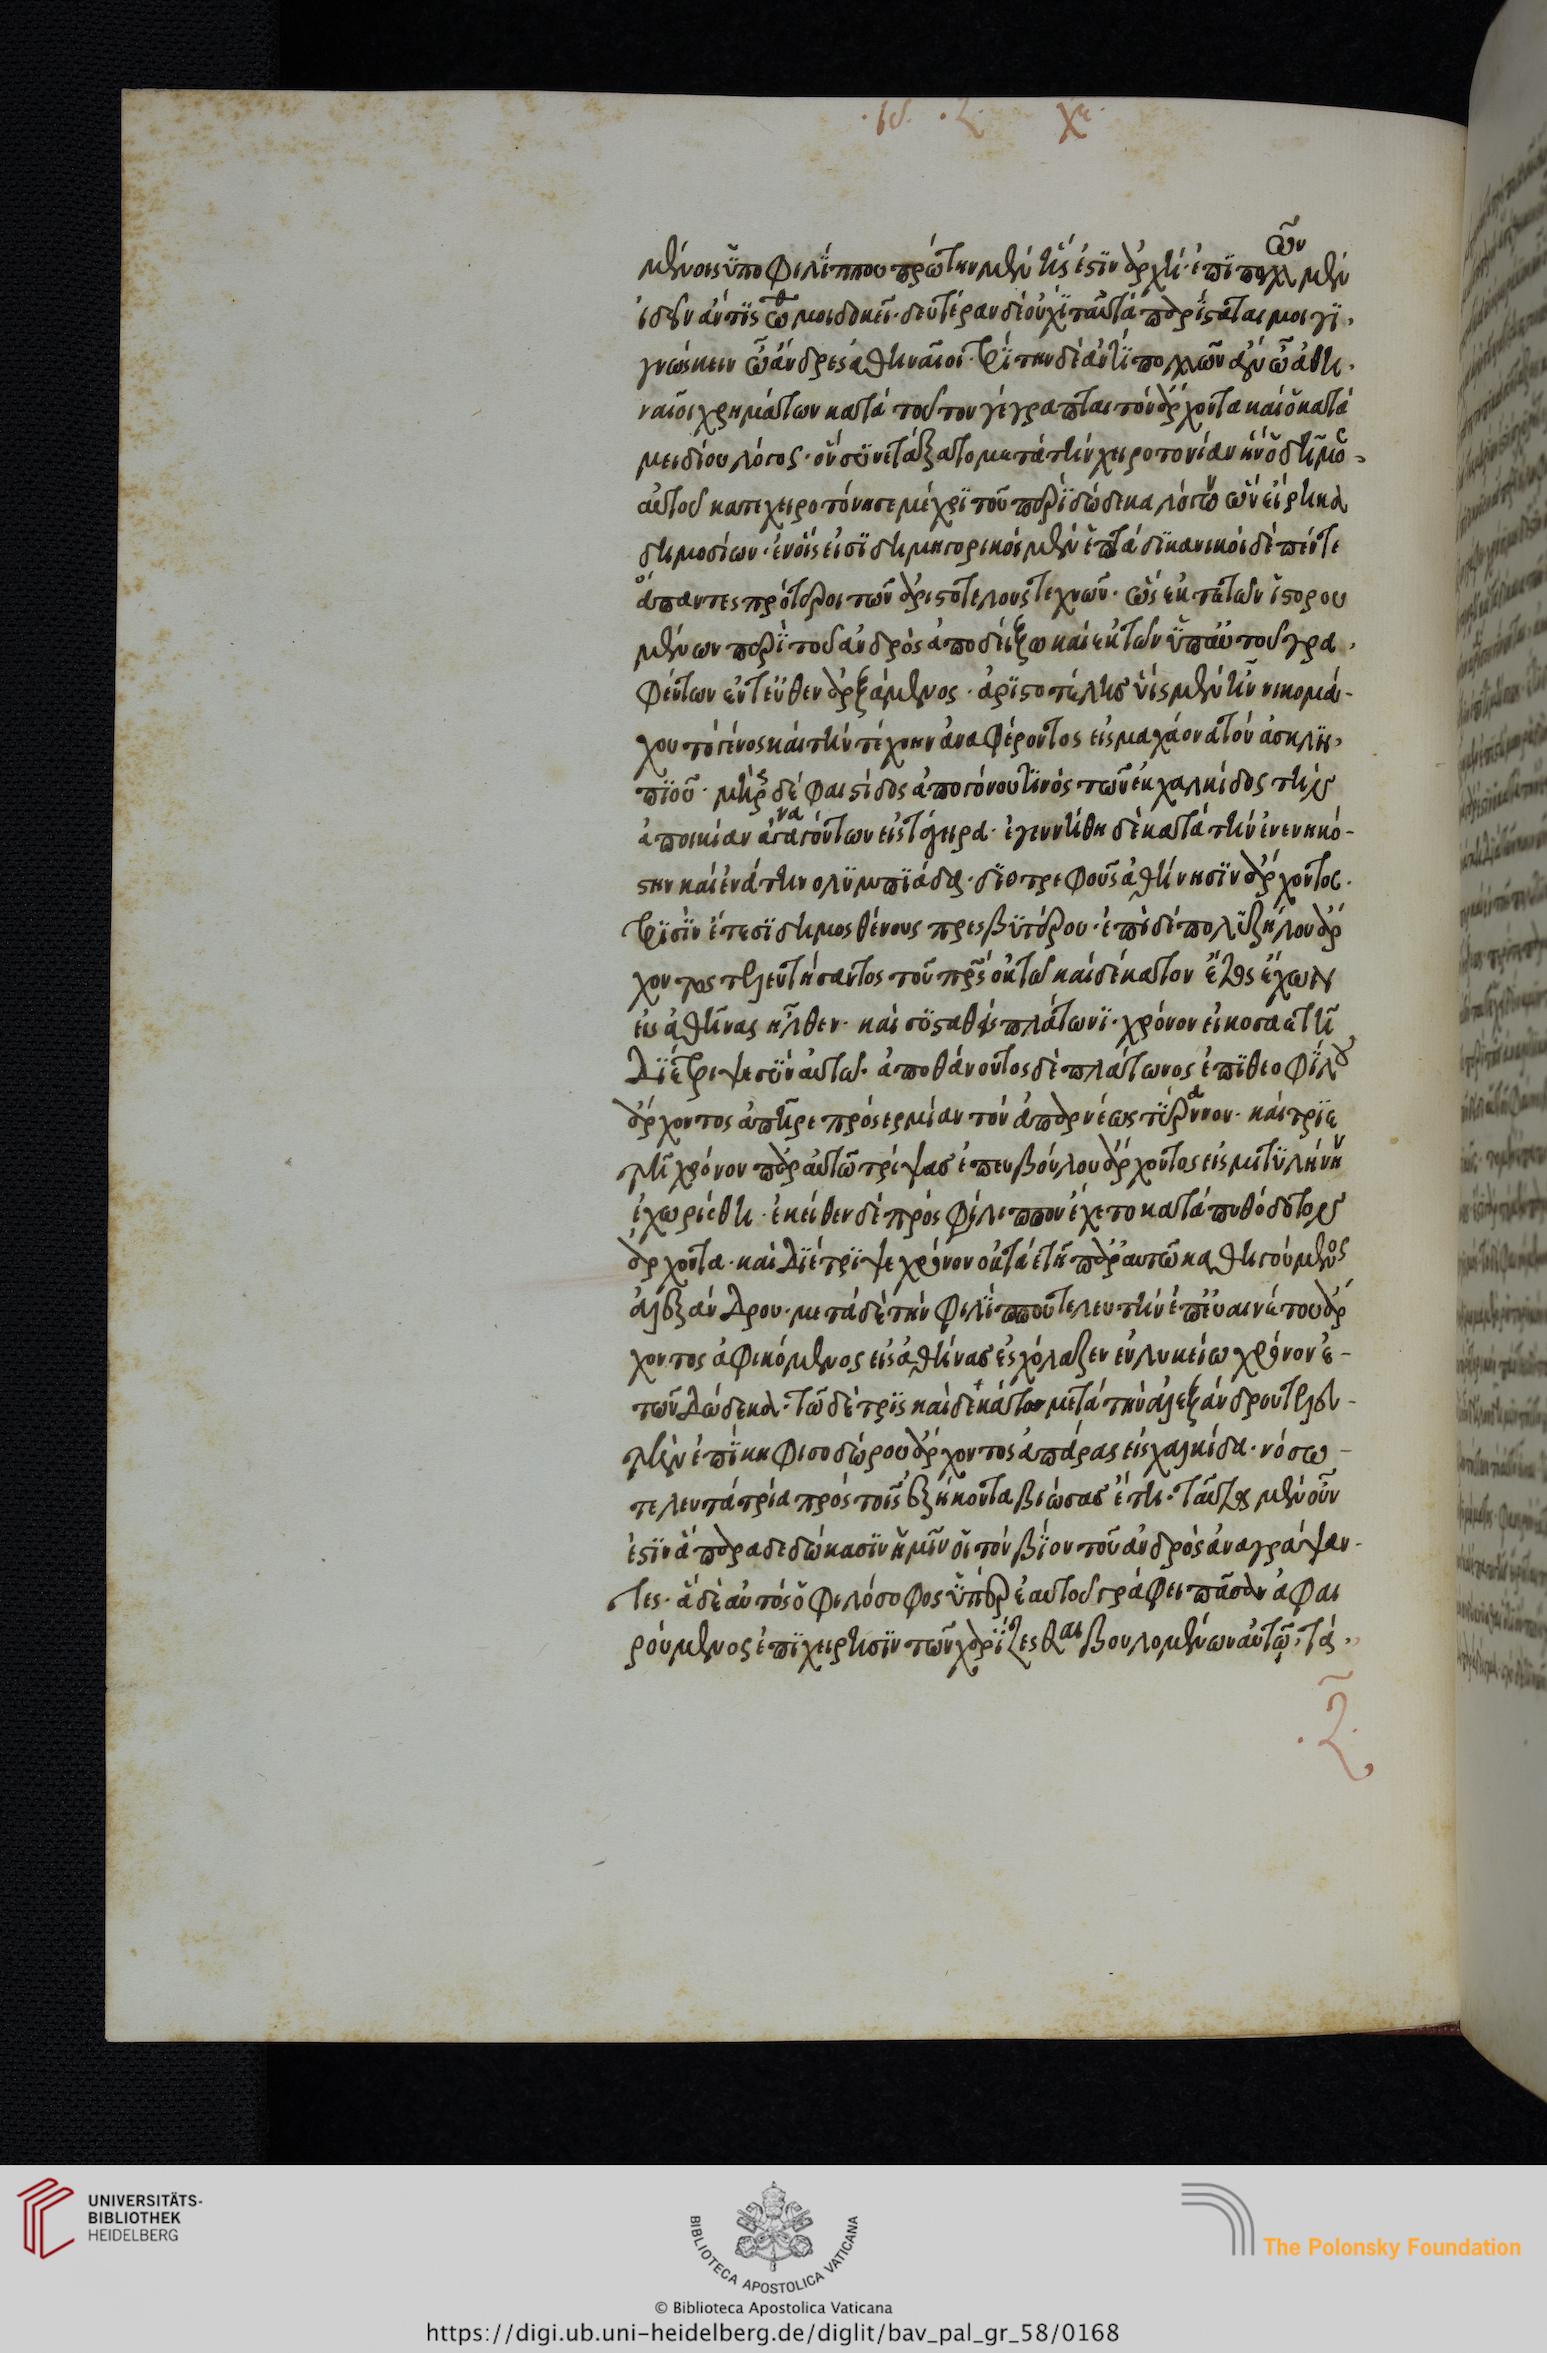 μένοις ὑπο φιλίππου πρώτην μὲν ἧς ἐστὶν ἀρχή· ἐπὶ πολλῶν μὲν
ἰδεῖν ἄν τις ὦ μοι δοκεῖ· δευτέραν δὲ οὐχὶ ταὐτὰ παρίσταται μοι γι
γνώσκειν ὦ ἄνδρες ἀθηναῖοι· τρίτην δὲ ἀντὶ πολλῶν ἂν ὦ ἀθη
ναῖοι χρημάτων κατὰ τοῦτον γέγραπται τὸν ἄρχοντα καὶ ὁ κατὰ
μειδίου λόγος· ὃν συνετάξατο μετὰ τὴν χειροτονίαν ἣν ὁ δῆμος
αὐτοῦ κατεχειροτόνησε μέχρι τοῦ περὶ δώδεκα λόγων ὧν εἴρηκα
δημοσίων· ἐν οἷς εἰσὶ δημηγορικοὶ μὲν ἑπτὰ δικανικοὶ δὲ πέντε
ἅπαντες πρότεροι τῶν ἀριστοτέλους τεχνῶν· ὡς ἐκ τούτων ἱστορου
μένων περὶ τοῦ ἀνδρὸς ἀποδείξω καὶ ἐκ τῶν ὑπ' αὐτοῦ γρα
φέντων ἐντεῦθεν ἀρξάμενος· ἀριστοτέλης υἱὸς μὲν ἦν νικομά
χου τὸ γένος καὶ τὴν τέχνην ἀναφέροντος εἰς μαχάονα τὸν ἀσκλη
πιοῦ· μητρὸς δὲ φαιστίδος ἀπογόνου τινὸς τῶν ἐκ χαλκίδος τὴν
ἀποικίαν ἀγαγόντων εἰς στάγειρα· ἐγεννήθη δὲ κατὰ τὴν ἐνενηκο
στὴν καὶ ἐνάτην ολυμπιάδα· διοτρεφοῦς ἀθήνησιν ἄρχοντος·
τρισὶν ἔτεσι δημοσθένους πρεσβυτέρου· ἐπὶ δὲ πολυζήλου ἄρ
χοντος τελευτήσαντος τοῦ πρς ὀκτωκαιδέκατον ἔτος ἔχων
εἰς ἀθήνας ἦλθεν· καὶ συσταθεὶς πλάτωνι· χρόνον εἰκοσαετῆ
διέτριψε σὺν αὐτῶ· ἀποθανόντος δὲ πλάτωνος ἐπὶ θεοφίλου
ἄρχοντος ἀπῆρε πρὸς ερμίαν τὸν ἀταρνέως τύραννον· καὶ τριε
τῆ χρόνον παρ αὐτῶ τρίψας ἐπ ευβούλου ἄρχοντος εἰς μιτυλήνην
ἐχωρίσθη· ἐκεῖθεν δὲ πρὸς φίλιππον ἔχετο κατὰ πυθόδοτον
ἄρχοντα· καὶ διέτριψε χρόνον οκταετῆ παρ αυτῶ καθηγούμενος
ἀλεξάνδρου· μετὰ δὲ τὴν φιλίππου τελευτὴν ἐπ' ευαινέτου ἄρ
χοντος ἀφικόμενος εἰς ἀθήνας ἐσχόλαζεν ἐν λυκείω χρόνον ἐ
τῶν δώδεκα· τῶ δὲ τρὶς καὶ δεκάτω μετὰ τὴν ἀλεξάνδρου τελευ
τὴν ἐπὶ κηφισοδώρου ἄρχοντος ἀπάρας εἰς χαλκίδα· νόσω
τελευτᾶ τρία πρὸς τοῖς ἑξήκοντα βιώσας ἔτη· ταῦτα μὲν οὖν
ἐστὶν ἃ παραδεδώκασιν ἡμῖν οἱ τὸν βίον τοῦ ἀνδρὸς ἀναγράψαν
τες· ἃ δὲ αὐτὸς ὁ φιλόσοφος ὑπὲρ ἑαυτοῦ γράφει πᾶσαν ἀφαι
ρούμενος ἐπιχείρησιν τῶν χαρίζεσθαι βουλομένων αὐτῶ, τὰ
UNIVERSITÄTS-
BIBLIOTHEK
HEIDELBERG
BIBLIOTECA APOSTOLICA VATICANA
The Polonsky Foundation
© Biblioteca Apostolica Vaticana
https://digi.ub.uni-heidelberg.de/diglit/bav_pal_gr_58/0168